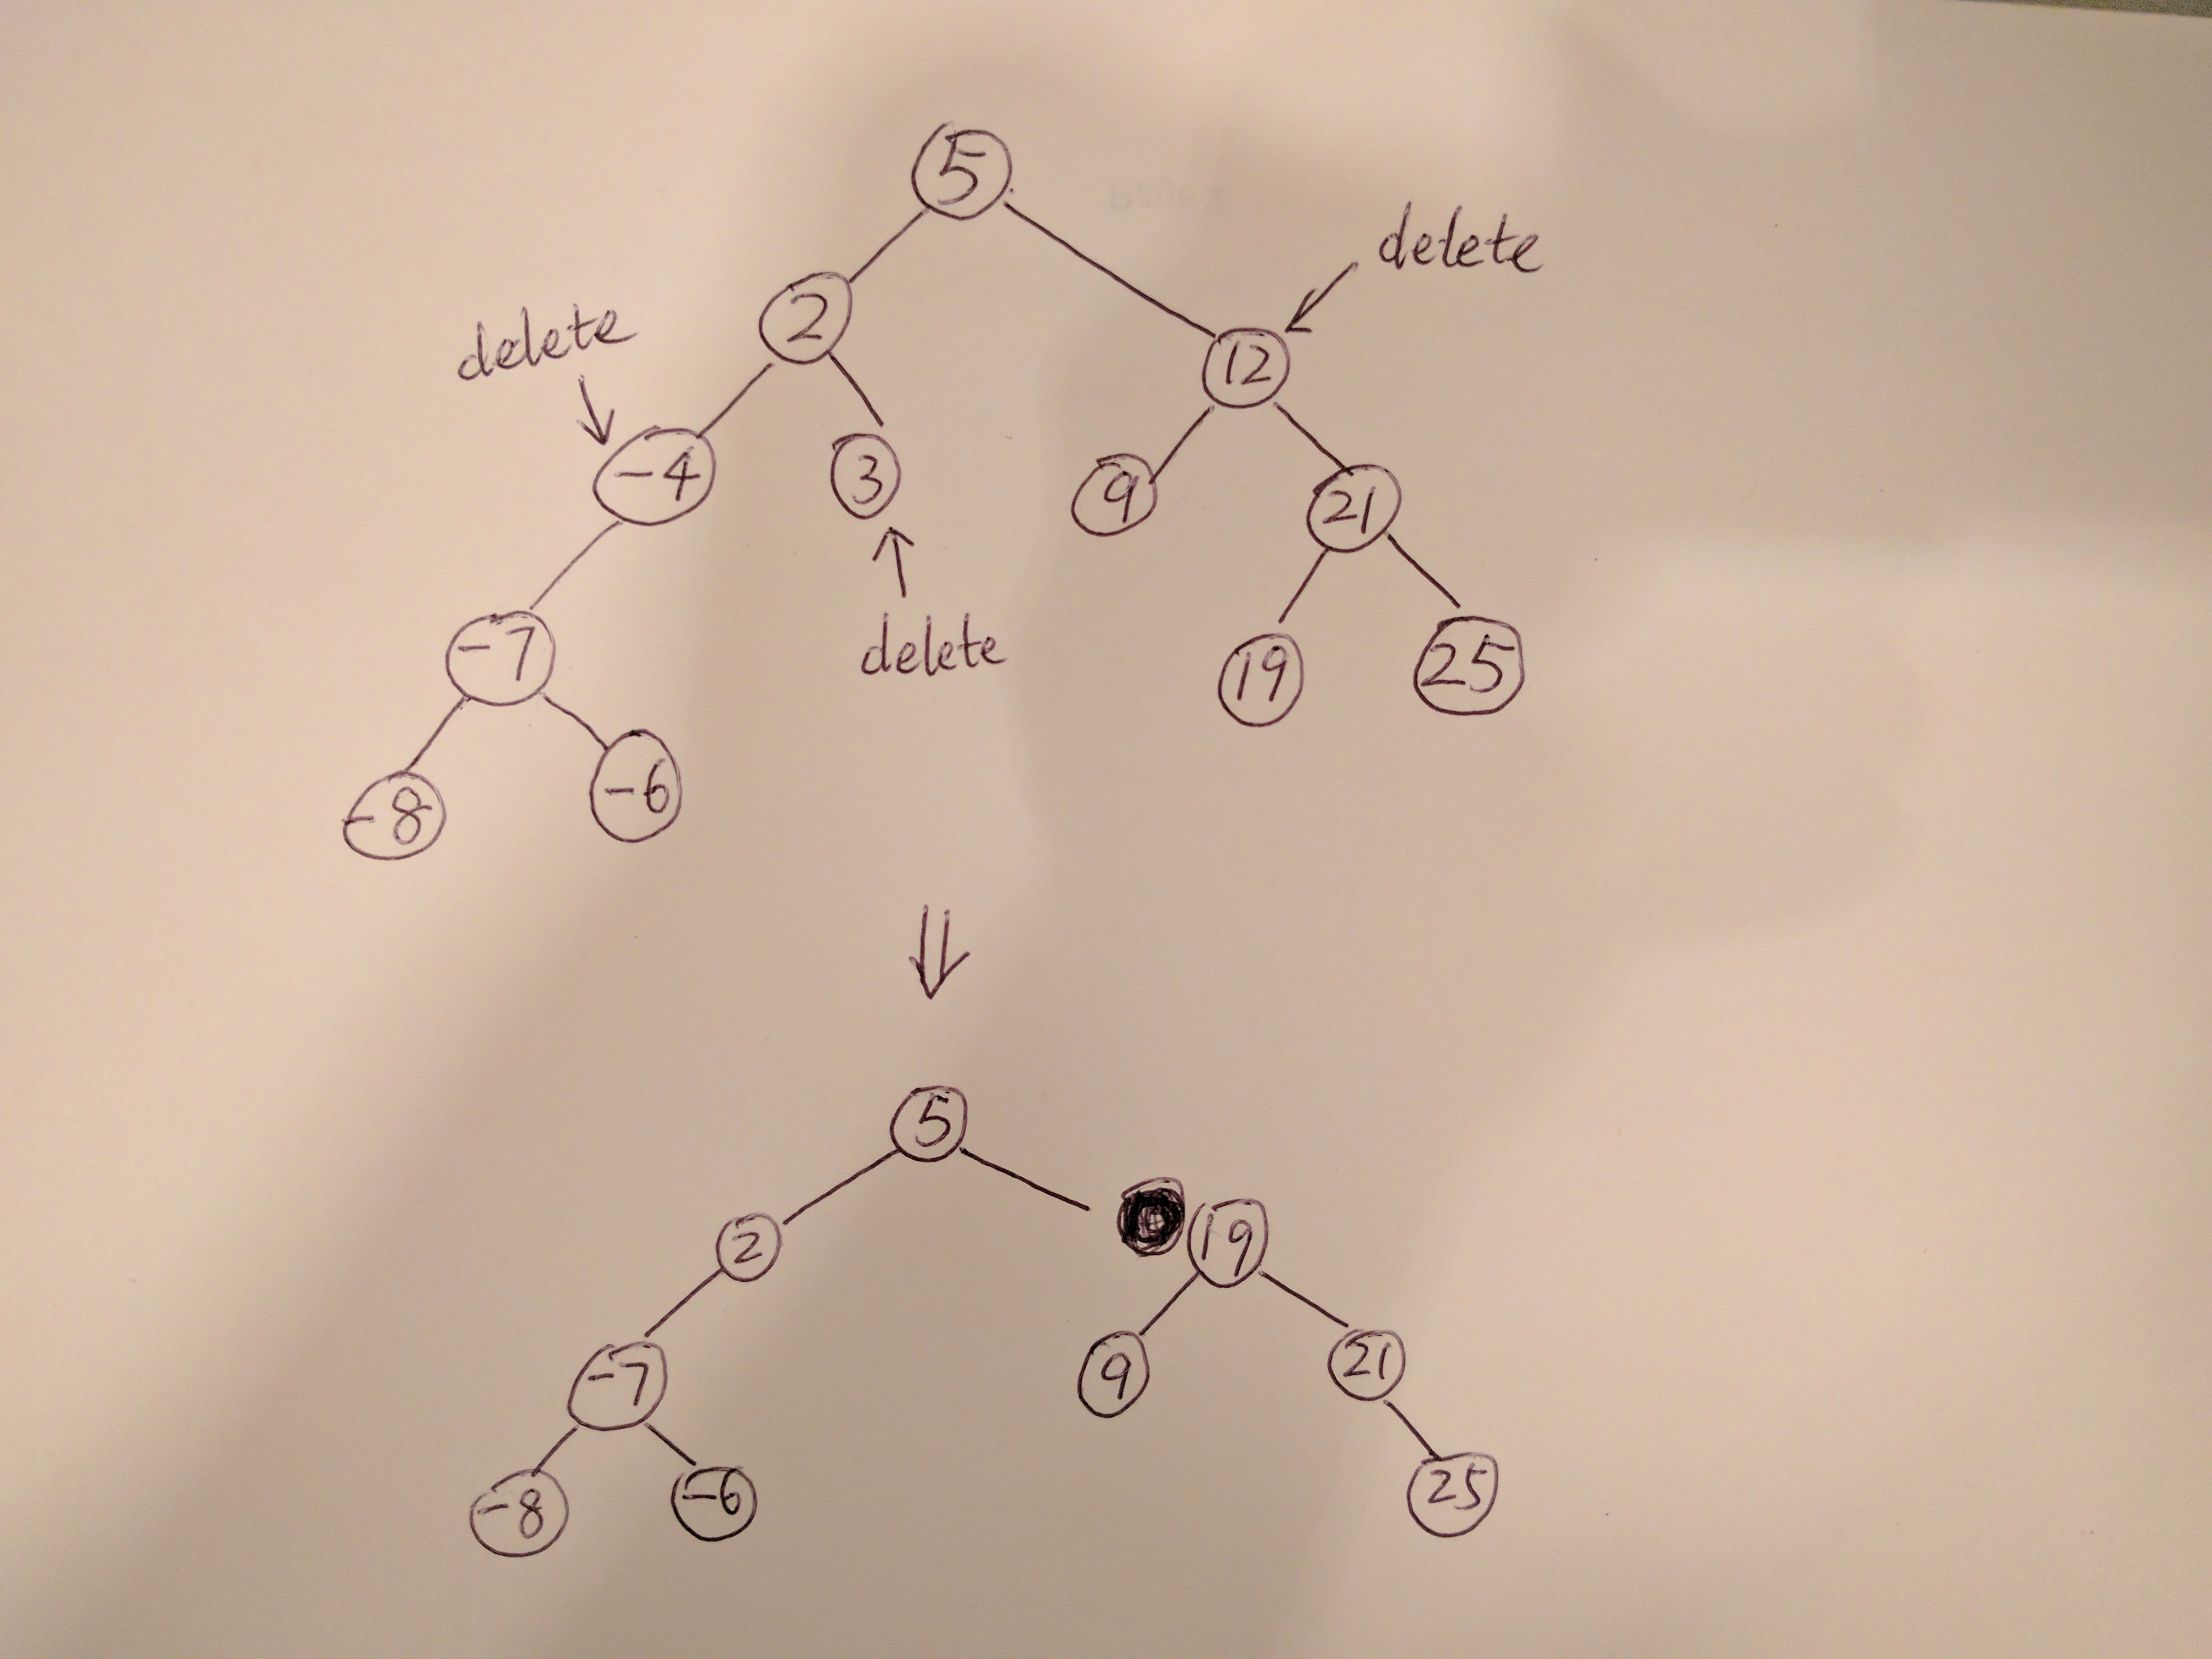 5
delete
2
12
delete
-4
3
9
21
-7
delete
19
25
-8
-6
5
2
19
-7
9
21
-8
-6
25